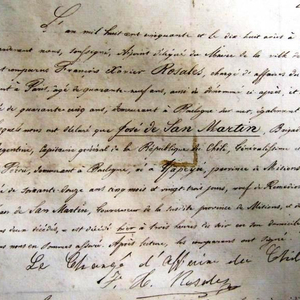 L'an mil huit cent cinquante et le dix huit août à
nous, soussigné, Adjoint délégué du Maire de la ville de
comparus François Xavier Rosales, chargé d'affaires du
à Paris, âgé de quarante neuf ans, ami du dénommé ci après, et
de quarante cinq ans, demeurant à Boulogne sur mer, également
nous ont déclaré que José de San Martin, Briga
argentine, Capitaine général de la République du Chili, Généralissime et
Pérou, demeurant à Boulogne, né à Yapeyu, province de Missions
de soixante douze ans cinq mois et vingt trois jours, veuf de Remedios
de San Martin, Gouverneur de la susdite province de Missions, et de
décédés, est décédé hier à trois heures du soir en son domicile
Après lecture, les comparans ont signé
Le Chargé d'Affaires du Chili
F. X. Rosales